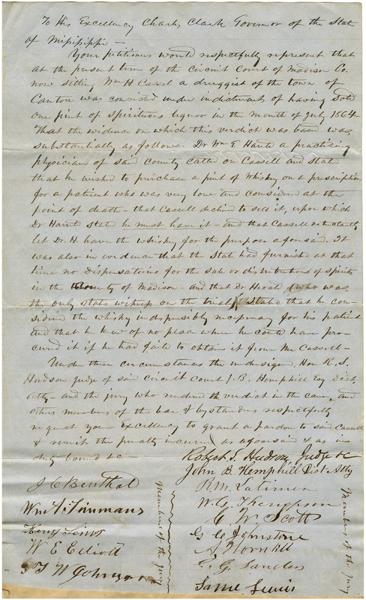 To His Excellency Charles Clark Governor of the State
of Mississippi —
Your petitioners would respectfully represent that
at the present term of the Circuit Court of Madison Co.
now sitting Wm H Cassel a druggist of the town of
Canton was convicted under indictment of having sold
one pint of spirituous liquor in the month of July 1864
That the evidence on which this verdict was had was
substantially as follows. Dr Wm E a practicing
physician of said County called on Cassell and stated
that he wished to purchase a pint of Whisky on prescription
for a patient who was very low and considered at the
point of death — that Cassell declined to sell it, upon which
Dr stated he must have it — and that Cassell reluctantly
let Dr. H. have the whisky for the purpose aforesaid. It
was also in evidence that the State had furnished at that
time no Dispensations for the sale or distribution of spirits
in the County of Madison — and that Dr (who was
the only state witness on the trial) stated that he con-
sidered the whisky indispensibly necessary for his patient
and that he knew of no place where he could have pro-
cured it if he had failed to obtain it from Mr Cassell —
Under these circumstances the undersigned, Hon R. S.
Hudson judge of said circuit Court J. B. Hemphill Dist
atty — and the jury who rendered the verdict in the case, and
other members of the bar & bystanders respectfully
request your Excellency to grant a pardon to said Cassell
& remit the penalty incurred as aforesaid & as in
duty bound &c
Robert S. Hudson, Judge &c
John B Hemphill Dist. Atty
J C
Wm
W E Elliott
T W Johnson
Members of the jury
R M Latimer
W. G. Thompson
C W Scott
G C Johnstone
A Thornhill
G G Sanders
Saml Lewis
Members of the jury